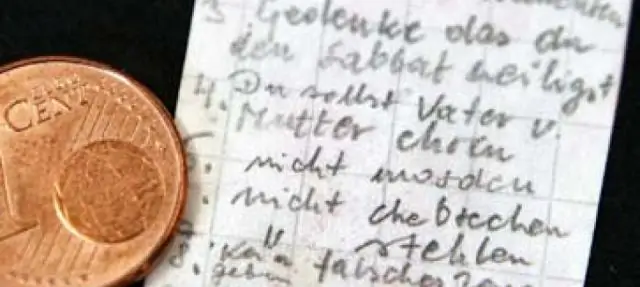 CENT
1
3 Gedenke das du
den Sabbat heiligst
4. Du sollst Vater u.
Mutter ehren
nicht morden
nicht ehebrechen
7. " stehlen
8. kein falsches
geben